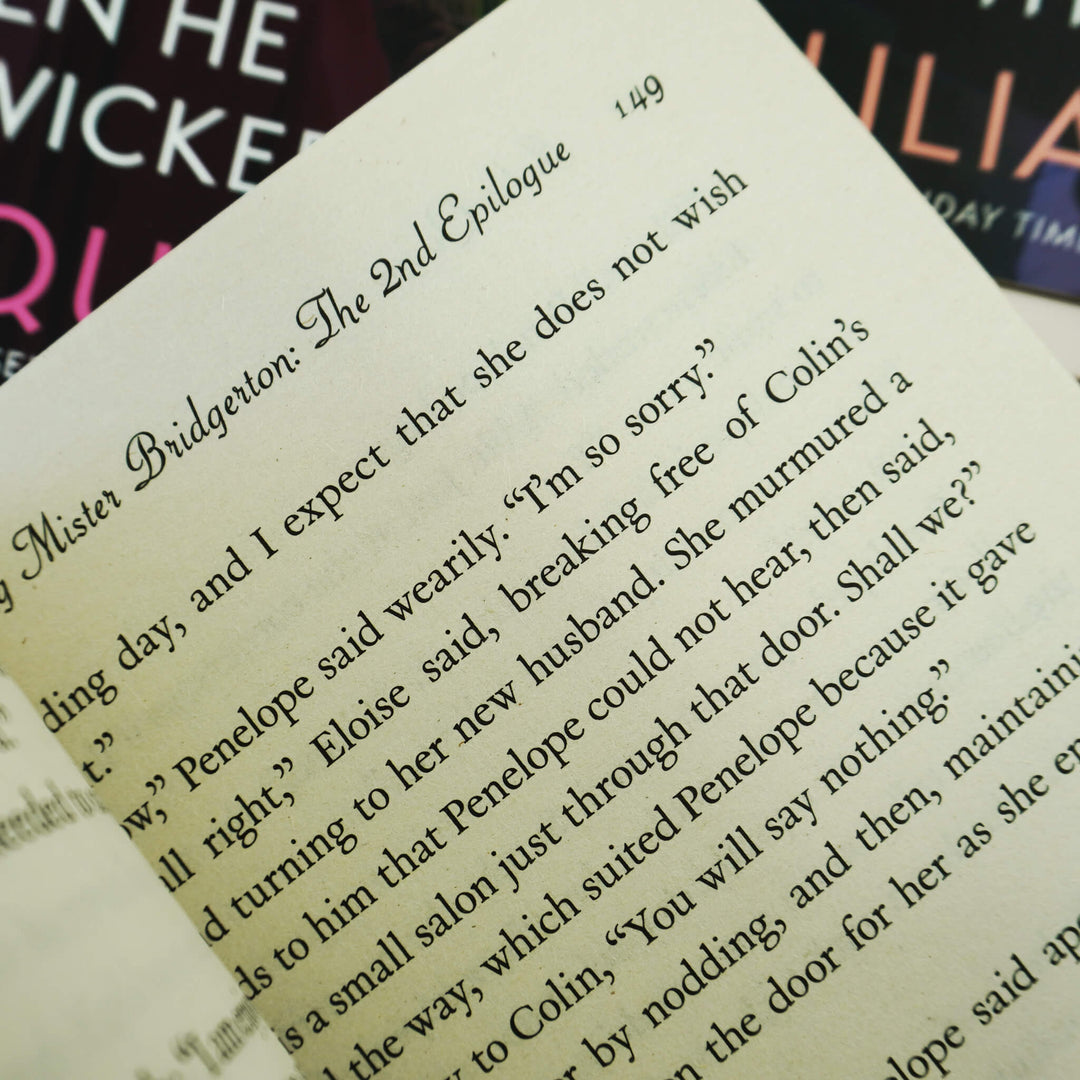 HE
WICKE
QU
ULIA
DAY TIM
149
Mister Bridgerton: The 2nd Epilogue
ding day, and I expect that she does not wish
t.”
ow,” Penelope said wearily. “I’m so sorry.”
all right,” Eloise said, breaking free of Colin’s
d turning to her new husband. She murmured a
ds to him that Penelope could not hear, then said,
is a small salon just through that door. Shall we?”
the way, which suited Penelope because it gave
y to Colin, “You will say nothing.”
r by nodding, and then, maintaini
n the door for her as she en
elope said apo